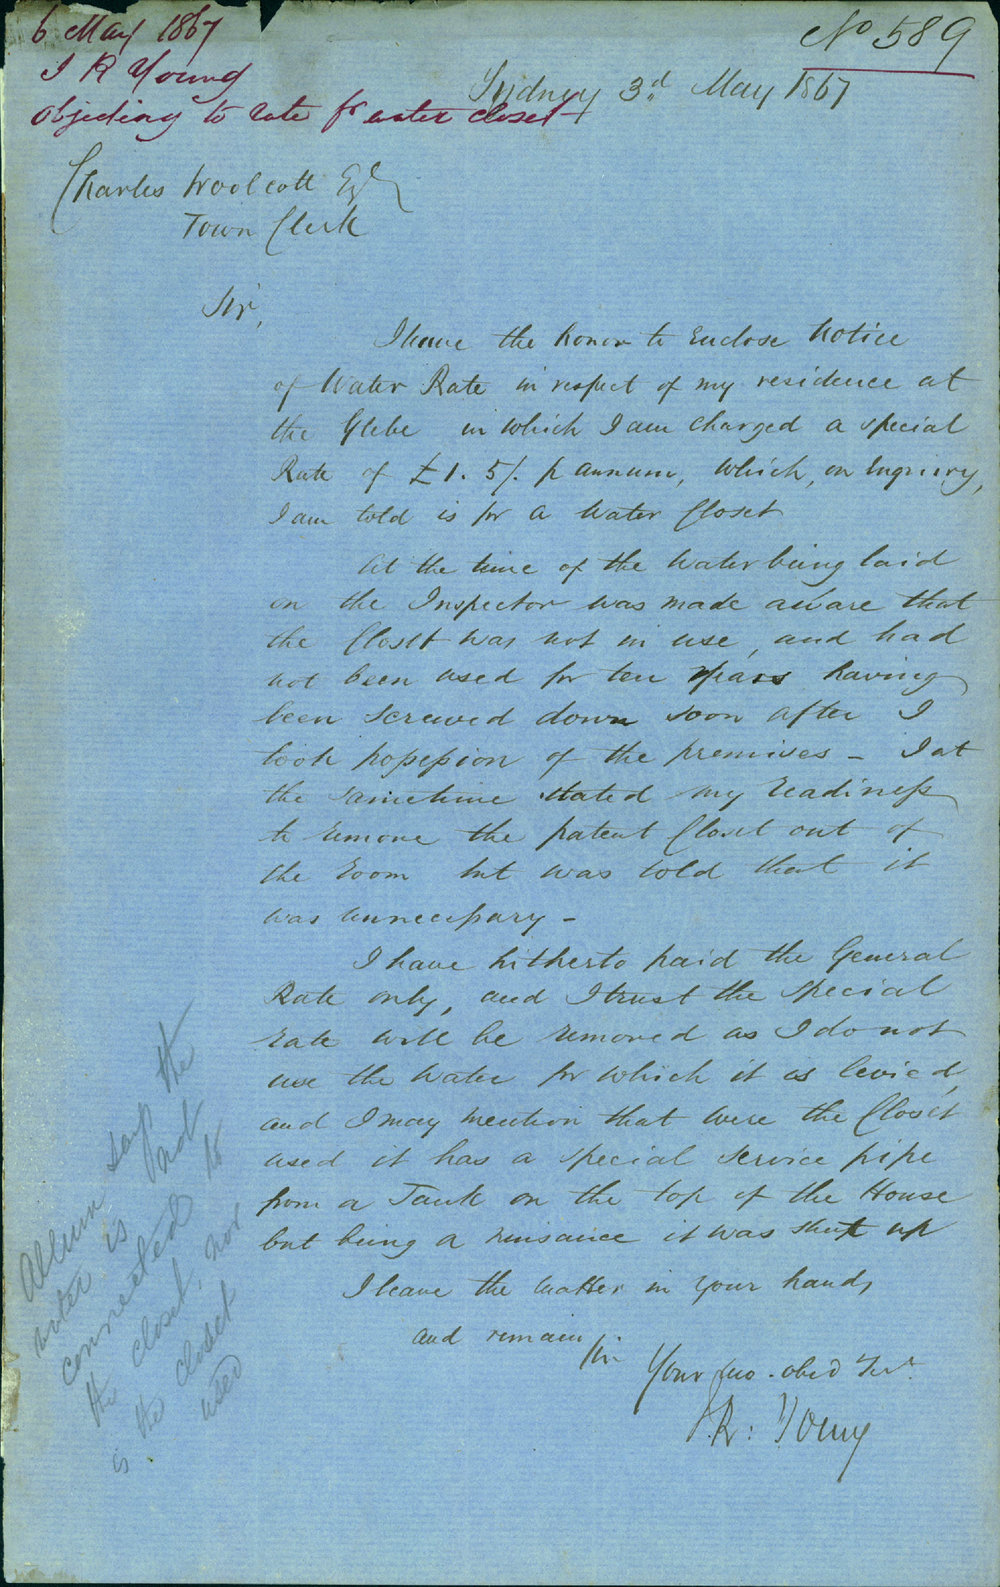 6 May 1867
J R Young
Objecting to rate for water closet
No 589
Sydney 3rd May 1867
Charles Woolcott Esq
Town Clerk
Sir,
I have the honor to Enclose Notice
of Water Rate in respect of my residence at
the Glebe in which I am charged a special
Rate of £1. 5/. p annum, which, on Enquiry,
I am told is for a Water Closet
At the time of the Water being laid
on the Inspector was made aware that
the Closet was not in use, and had
not been used for ten years having
been screwed down soon after I
took possession of the premises - I at
the sametime stated my readiness
to remove the patent Closet out of
the room but was told that it
was unnecessary -
I have hitherto paid the General
Rate only, and I trust the special
rate will be removed as I do not
use the Water for which it is levied,
and I may mention that were the Closet
used it has a special service pipe
from a Tank on the top of the House
but being a nuisance it was shut up
I leave the matter in your hands
and remain
Sir
Your mo. obed Servt
J. R. Young
says the
water is
connected to
the closet, nor
is the closet
used